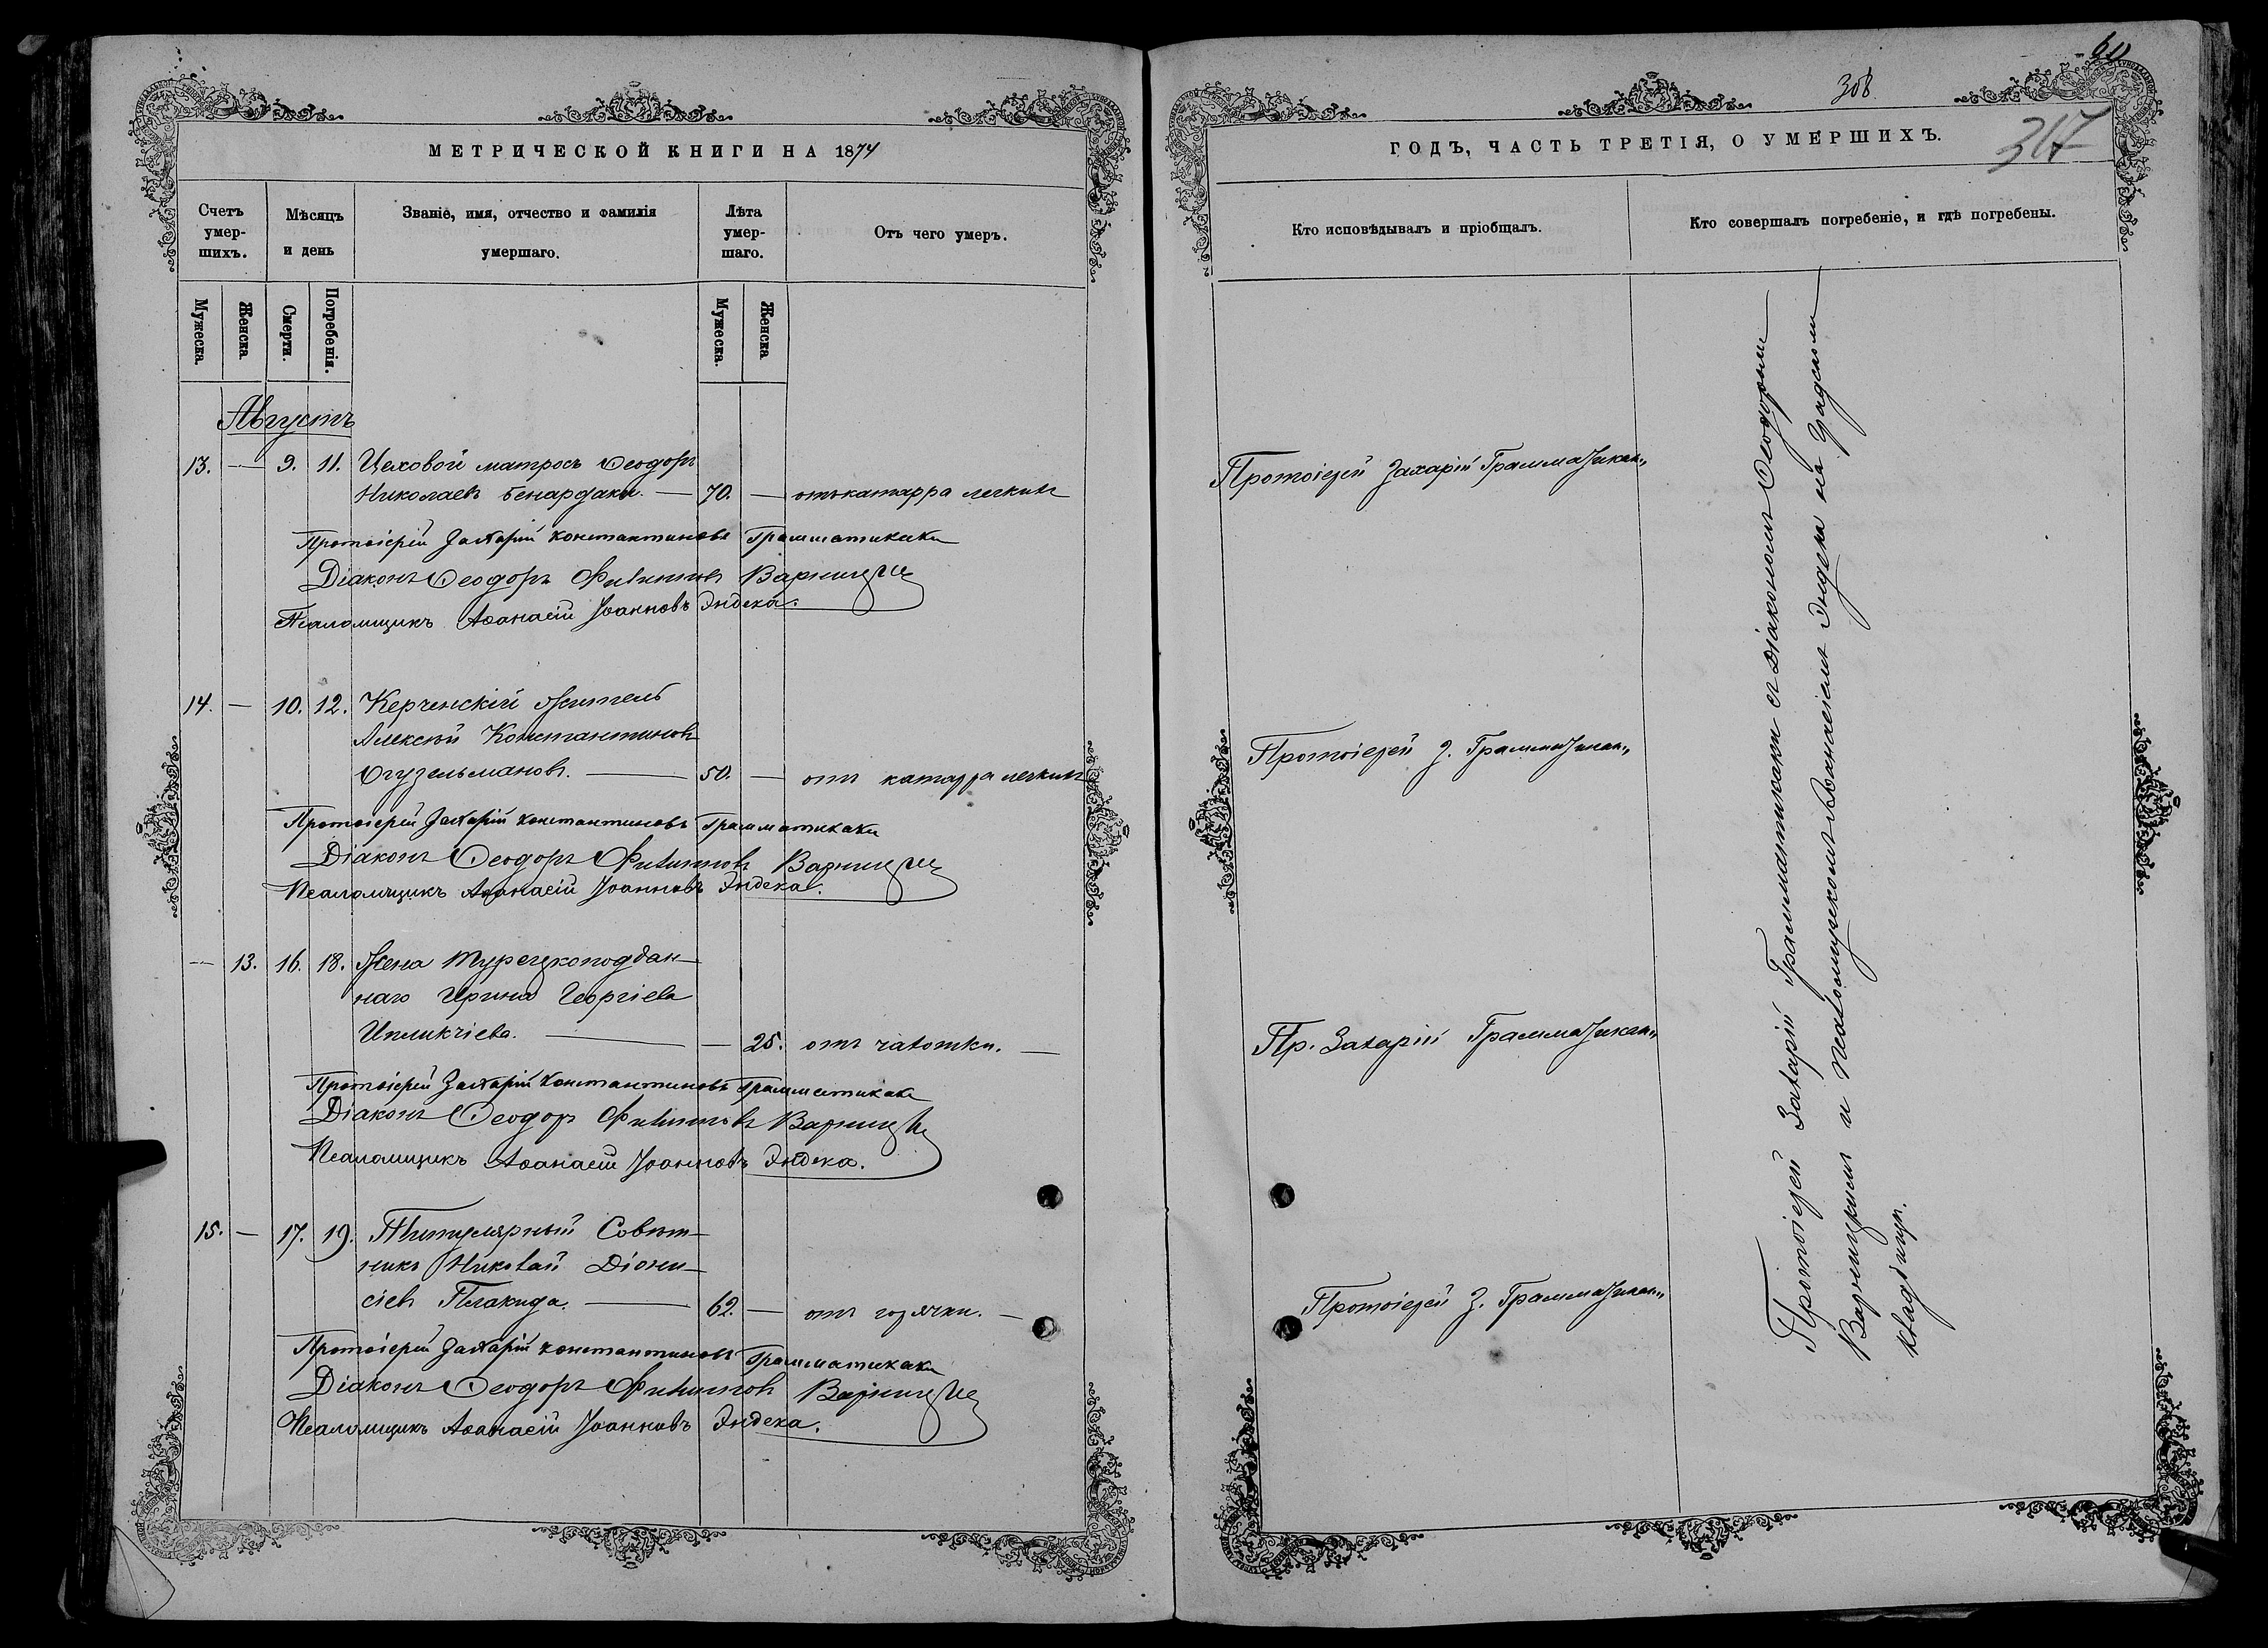 МЕТРИЧЕСКОЙ КНИГИ НА 1874
Счетъ умер-шихъ.
Мѣсяцъ и день
Званіе, имя, отчество и фамилія умершаго.
Лѣта умер-шаго.
Отъ чего умеръ.
Мужеска.
Женска
Смерти.
Погребенія.
Мужеска.
Женска
Августъ
13. — 9. 11. Цеховой матросъ Ѳеодоръ
Николаевъ Бенардаки. — 70. — отъ катарра легкихъ
Протоіерей Захарій Константиновъ Грамматикаки
Діаконъ Ѳеодоръ Филипповъ
Псаломщикъ Аѳанасій Іоанновъ Эндека.
14. — 10. 12. Керченскій житель
Алексѣй Константиновъ
Огузельмановъ. — 50. — отъ катарра легкихъ
Протоіерей Захарій Константиновъ Грамматикаки
Діаконъ Ѳеодоръ Филипповъ
Псаломщикъ Аѳанасій Іоанновъ Эндека.
— 13. 16. 18. Жена Турецкоподдан-
наго Ирина Георгіева
Ипликчіева. — — 25. отъ чахотки. —
Протоіерей Захарій Константиновъ Грамматикаки
Діаконъ Ѳеодоръ Филипповъ
Псаломщикъ Аѳанасій Іоанновъ Эндека.
15. — 17. 19. Титулярный Совѣт-
никъ Николай Діони-
сіевъ Плакида. — 62. — отъ горячки. —
Протоіерей Захарій Константиновъ Грамматикаки
Діаконъ Ѳеодоръ Филипповъ
Псаломщикъ Аѳанасій Іоанновъ Эндека.
60
308
317
ГОДЪ, ЧАСТЬ ТРЕТІЯ, О УМЕРШИХЪ.
Кто исповѣдывалъ и пріобщалъ.
Кто совершалъ погребеніе, и гдѣ погребены.
Протоіерей Захарій Грамматикаки
Протоіерей З. Грамматикаки
Пр. Захарій Грамматикаки
Протоіерей З. Грамматикаки
Протоіерей Захарій Грамматикаки съ Діакономъ Ѳеодоромъ
и Псаломщикомъ Аѳанасіемъ Эндека на Градскомъ
кладбищѣ.